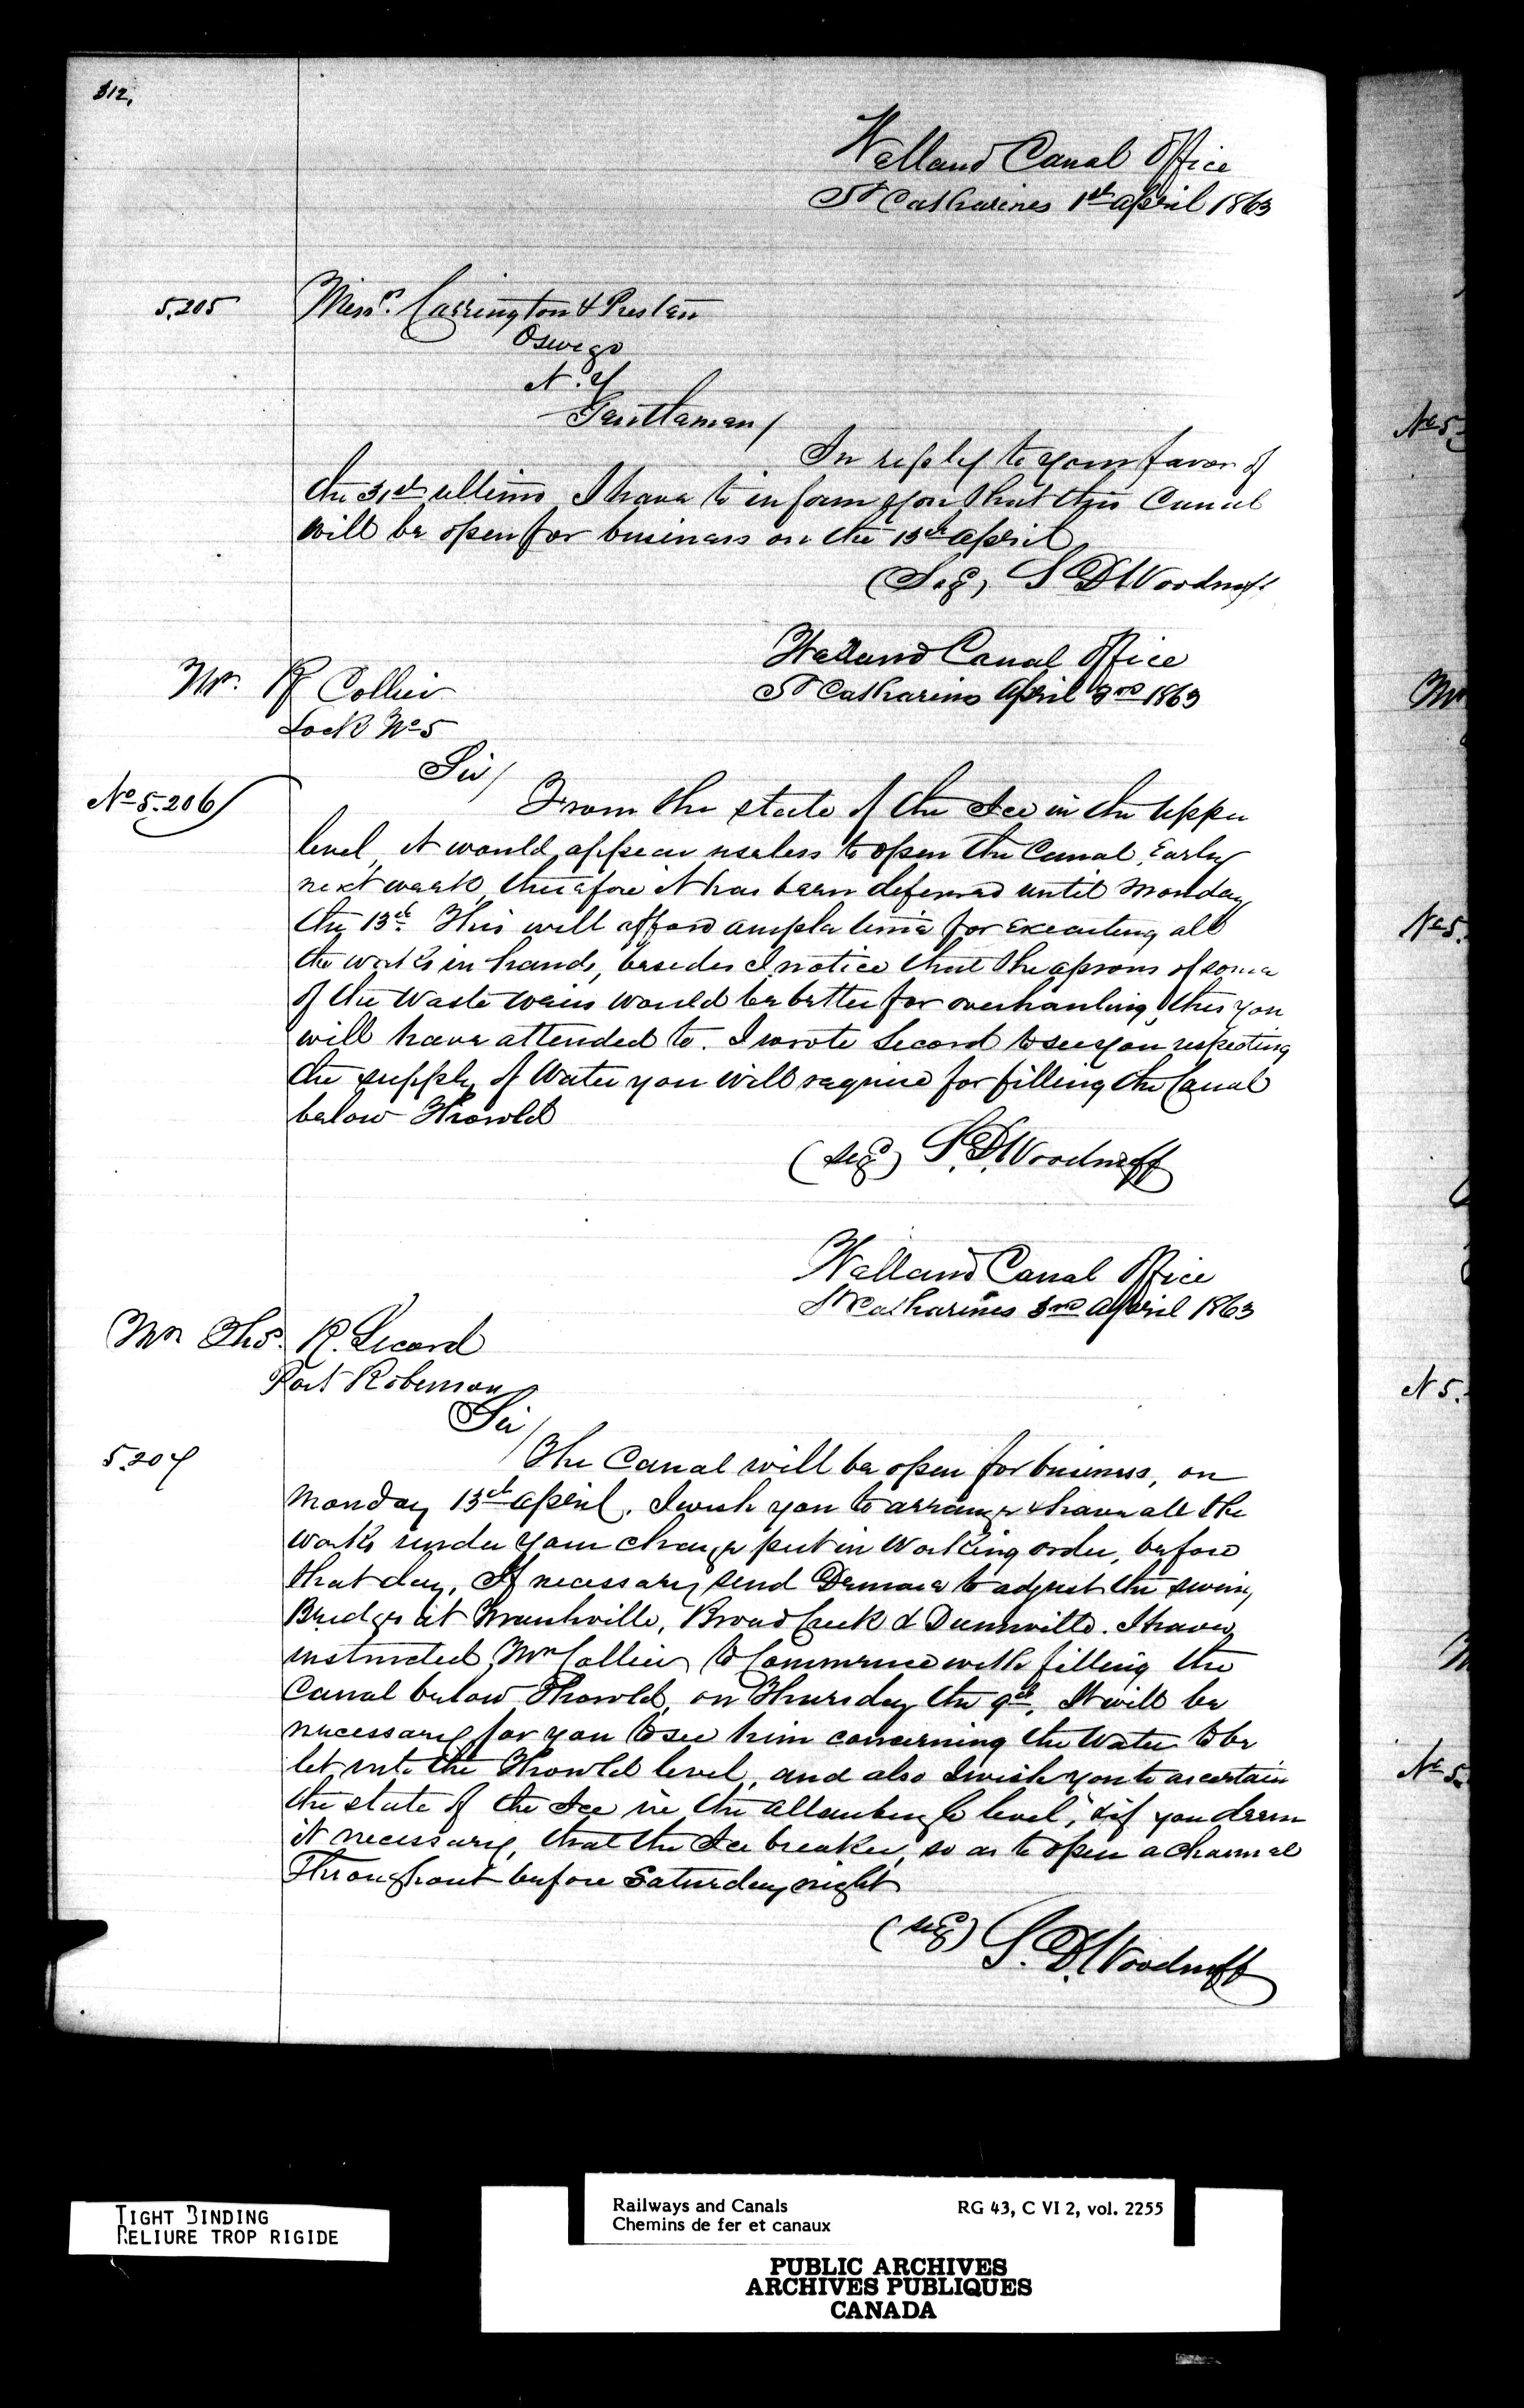 312,
Welland Canal Office
St Catharines 1st April 1863
5.205
Messrs. Carrington & Preston
Oswego
N.Y
Gentlemen/
In reply to your favor of
the 31st ultimo I have to inform you that this Canal
will be open for business on the 13th April
(Sigd) S D Woodruff
Welland Canal Office
St Catharines April 3rd 1863
Mr. R Collier
Lock No 5
Sir/
No 5.206
From the state of the Ice in the upper
level, it would appear useless to open the Canal, Early
next week, therefore it has been deferred until Monday
the 13th. This will afford ample time for executing all
the works in hand, besides I notice that the aprons of some
of the Waste weirs would be better for overhauling, this you
will have attended to. I wrote Secord to see you respecting
the supply of Water you will require for filling the Canal
below Thorold
(Sigd) S.D. Woodruff
Welland Canal Office
St Catharines 3rd April 1863
Mr Thos. R. Secord
Port Robinson
Sir/
5.207
The Canal will be open for business, on
Monday 13th April. I wish you to arrange & have all the
works under your charge put in Working order, before
that day. If necessary send Demare to adjust the swing
Bridges at Marshville, Broad Creek & Dunnville. I have
instructed Mr Collier to Commence with filling the
Canal below Thorold, on Thursday the 9th. It will be
necessary for you to see him concerning the Water to be
let into the Thorold level, and also I wish you to ascertain
the state of the Ice in the Allanburgh level, & if you deem
it necessary, that the Ice breaker, so as to open a channel
Throughout before Saturday night
(Sigd) S. D. Woodruff
No 5
Mr
No 5.
N 5.
No 5.
TIGHT BINDING
RELIURE TROP RIGIDE
Railways and Canals
Chemins de fer et canaux
RG 43, C VI 2, vol. 2255
PUBLIC ARCHIVES
ARCHIVES PUBLIQUES
CANADA